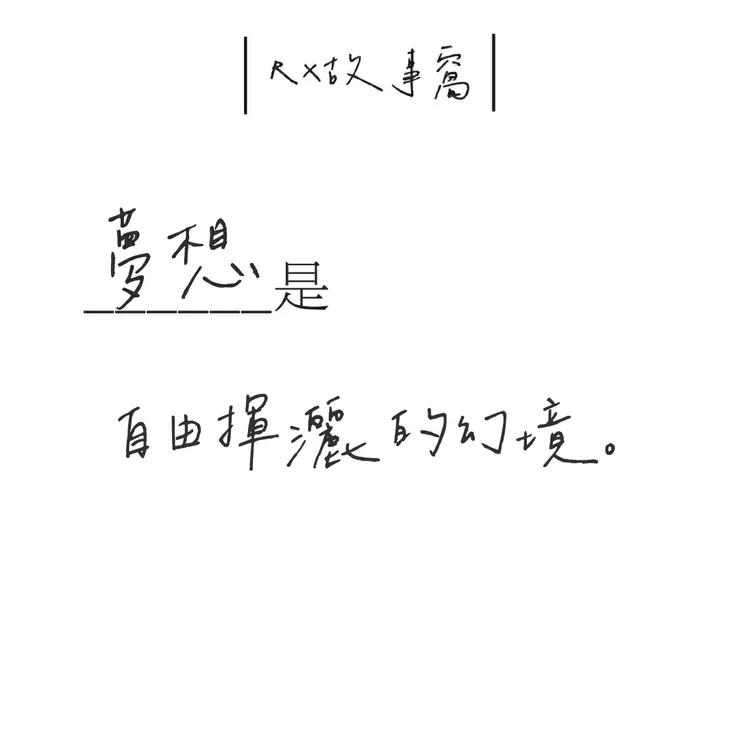 |R×故事窩|
夢想是
自由揮灑的幻境。